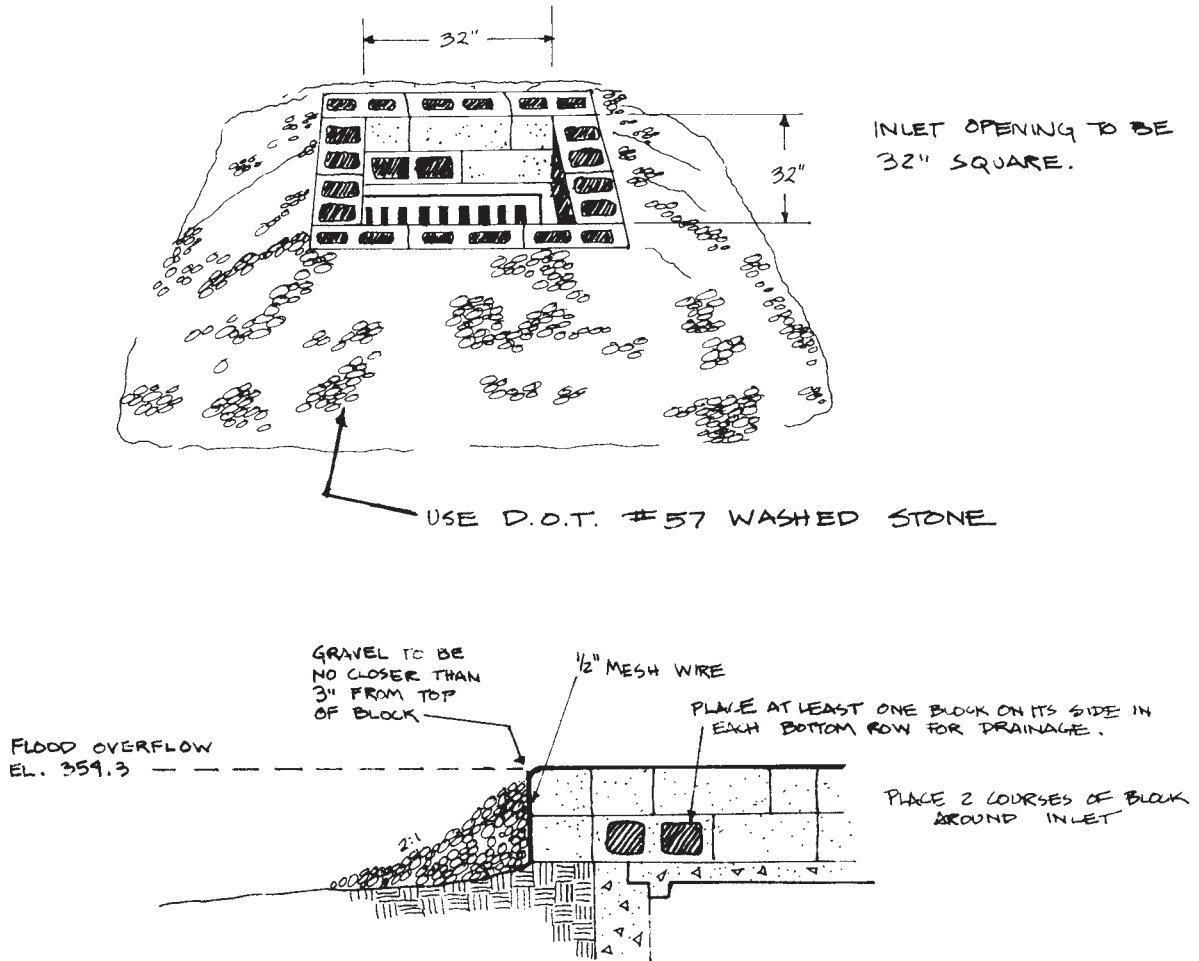 32"
INLET OPENING TO BE
32" SQUARE.
32"
USE D.O.T. #57 WASHED STONE
GRAVEL TO BE
NO CLOSER THAN
3" FROM TOP
OF BLOCK
1/2" MESH WIRE
PLACE AT LEAST ONE BLOCK ON ITS SIDE IN
EACH BOTTOM ROW FOR DRAINAGE.
FLOOD OVERFLOW
EL. 359.3
PLACE 2 COURSES OF BLOCK
AROUND INLET
2:1